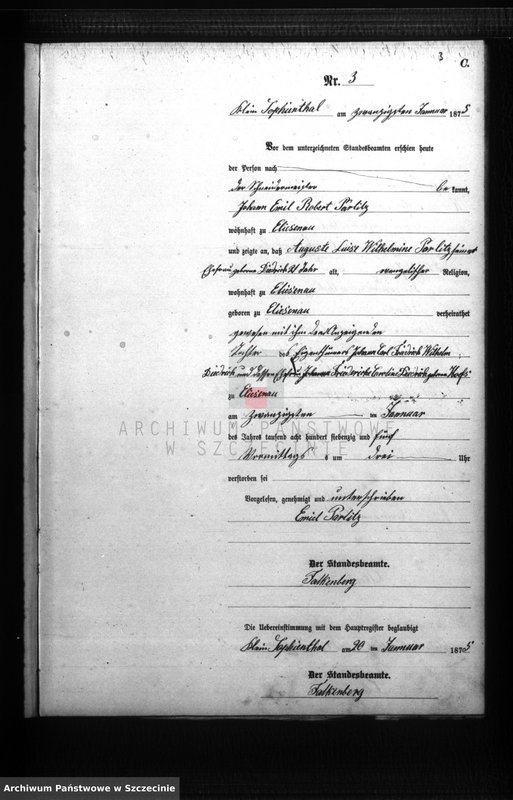 3
C.
Nr. 3
Klein Sophienthal am zwanzigsten Januar 1875
Vor dem unterzeichneten Standesbeamten erschien heute
der Person nach
der Schneidermeister bekannt,
Johann Emil Robert Parlitz
wohnhaft zu Eliesenau
und zeigte an, daß Auguste Luise Wilhelmine Parlitz seine
Ehefrau geborne Diedrich 21 Jahr alt, evangelischer Religion,
wohnhaft zu Eliesenau
geboren zu Eliesenau verheirathet
gewesen mit ihm dem Anzeigenden
Tochter des Eigenthümers Johann Carl Friedrich Wilhelm
Diedrich und dessen Ehefrau Friederike Caroline
zu Eliesenau
am zwanzigsten ten Januar
des Jahres tausend acht hundert siebenzig und fünf
Vormittags um drei Uhr
verstorben sei
Vorgelesen, genehmigt und unterschrieben
Emil Parlitz
Der Standesbeamte.
Falkenberg
Die Uebereinstimmung mit dem Hauptregister beglaubigt
Klein Sophienthal am 20 ten Januar 1875
Der Standesbeamte.
Falkenberg
ARCHIWUM PAŃSTWOWE
W SZCZECINIE
Archiwum Państwowe w Szczecinie